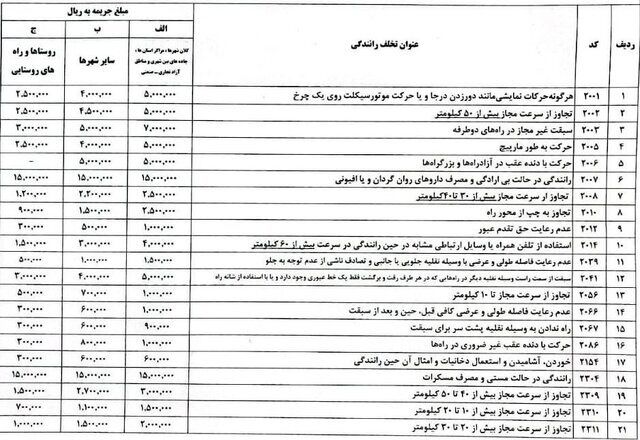 ردیف کد عنوان تخلف رانندگی مبلغ جریمه به ریال
الف ب ج
کلان شهرها ، مراکز استان ها ، جاده های بین شهری و مناطق آزاد تجاری – صنعتی سایر شهرها روستاها و راه های روستایی
۱ ۲۰۰۱ هرگونه حرکات نمایشی مانند دورزدن درجا و یا حرکت موتورسیکلت روی یک چرخ ۵,۰۰۰,۰۰۰ ۴,۰۰۰,۰۰۰ ۲,۵۰۰,۰۰۰
۲ ۲۰۰۲ تجاوز از سرعت مجاز بیش از ۵۰ کیلومتر ۵,۰۰۰,۰۰۰ ۴,۵۰۰,۰۰۰ ۲,۵۰۰,۰۰۰
۳ ۲۰۰۳ سبقت غیر مجاز در راه‌های دوطرفه ۷,۰۰۰,۰۰۰ ۵,۰۰۰,۰۰۰ ۳,۰۰۰,۰۰۰
۴ ۲۰۰۵ حرکت به طور مارپیچ ۵,۰۰۰,۰۰۰ ۴,۰۰۰,۰۰۰ ۲,۵۰۰,۰۰۰
۵ ۲۰۰۶ حرکت با دنده عقب در آزادراه‌ها و بزرگراه‌ها ۵,۰۰۰,۰۰۰ ۵,۰۰۰,۰۰۰ –
۶ ۲۰۰۷ رانندگی در حالت بی ارادگی و مصرف داروهای روان گردان و یا افیونی ۱۵,۰۰۰,۰۰۰ ۱۵,۰۰۰,۰۰۰ ۱۵,۰۰۰,۰۰۰
۷ ۲۰۰۸ تجاوز از سرعت مجاز بیش از ۳۰ تا ۴۰ کیلومتر ۲,۵۰۰,۰۰۰ ۲,۲۰۰,۰۰۰ ۱,۲۰۰,۰۰۰
۸ ۲۰۱۰ تجاوز به چپ از محور راه ۲,۵۰۰,۰۰۰ ۱,۵۰۰,۰۰۰ ۹۰۰,۰۰۰
۹ ۲۰۱۲ عدم رعایت حق تقدم عبور ۱,۰۰۰,۰۰۰ ۵۰۰,۰۰۰ ۳۰۰,۰۰۰
۱۰ ۲۰۱۴ استفاده از تلفن همراه یا وسایل ارتباطی مشابه در حین رانندگی در سرعت بیش از ۶۰ کیلومتر ۴,۰۰۰,۰۰۰ ۳,۰۰۰,۰۰۰ ۱,۵۰۰,۰۰۰
۱۱ ۲۰۳۹ عدم رعایت فاصله طولی و عرضی با وسیله نقلیه جلویی یا جانبی و تصادف ناشی از عدم توجه به جلو ۱,۰۰۰,۰۰۰ ۱,۰۰۰,۰۰۰ ۵۰۰,۰۰۰
۱۲ ۲۰۴۱ سبقت از سمت راست وسیله نقلیه دیگر در راه‌هایی که در هر طرف رفت و برگشت فقط یک خط عبوری وجود دارد و یا با استفاده از شانه راه ۵,۰۰۰,۰۰۰ ۴,۰۰۰,۰۰۰ ۳,۰۰۰,۰۰۰
۱۳ ۲۰۵۶ تجاوز از سرعت مجاز تا ۱۰ کیلومتر ۱,۰۰۰,۰۰۰ ۷۰۰,۰۰۰ ۵۰۰,۰۰۰
۱۴ ۲۰۶۶ عدم رعایت فاصله طولی و عرضی کافی قبل، حین و بعد از سبقت ۱,۰۰۰,۰۰۰ ۶۰۰,۰۰۰ ۳۰۰,۰۰۰
۱۵ ۲۰۶۷ راه ندادن به وسیله نقلیه پشت سر برای سبقت ۹۰۰,۰۰۰ ۶۰۰,۰۰۰ ۳۰۰,۰۰۰
۱۶ ۲۰۸۶ حرکت با دنده عقب غیر ضروری در راه‌ها ۱,۰۰۰,۰۰۰ ۸۰۰,۰۰۰ ۳۰۰,۰۰۰
۱۷ ۲۱۵۴ خوردن، آشامیدن و استعمال دخانیات و امثال آن حین رانندگی ۶۰۰,۰۰۰ ۶۰۰,۰۰۰ ۳۰۰,۰۰۰
۱۸ ۲۳۰۴ رانندگی در حالت مستی و مصرف مسکرات ۱۵,۰۰۰,۰۰۰ ۱۵,۰۰۰,۰۰۰ ۱۵,۰۰۰,۰۰۰
۱۹ ۲۳۰۹ تجاوز از سرعت مجاز بیش از ۴۰ تا ۵۰ کیلومتر ۳,۰۰۰,۰۰۰ ۲,۷۰۰,۰۰۰ ۱,۵۰۰,۰۰۰
۲۰ ۲۳۱۰ تجاوز از سرعت مجاز بیش از ۱۰ تا ۲۰ کیلومتر ۱,۵۰۰,۰۰۰ ۱,۱۰۰,۰۰۰ ۷۰۰,۰۰۰
۲۱ ۲۳۱۱ تجاوز از سرعت مجاز بیش از ۲۰ تا ۳۰ کیلومتر ۲,۰۰۰,۰۰۰ ۱,۵۰۰,۰۰۰ ۱,۰۰۰,۰۰۰